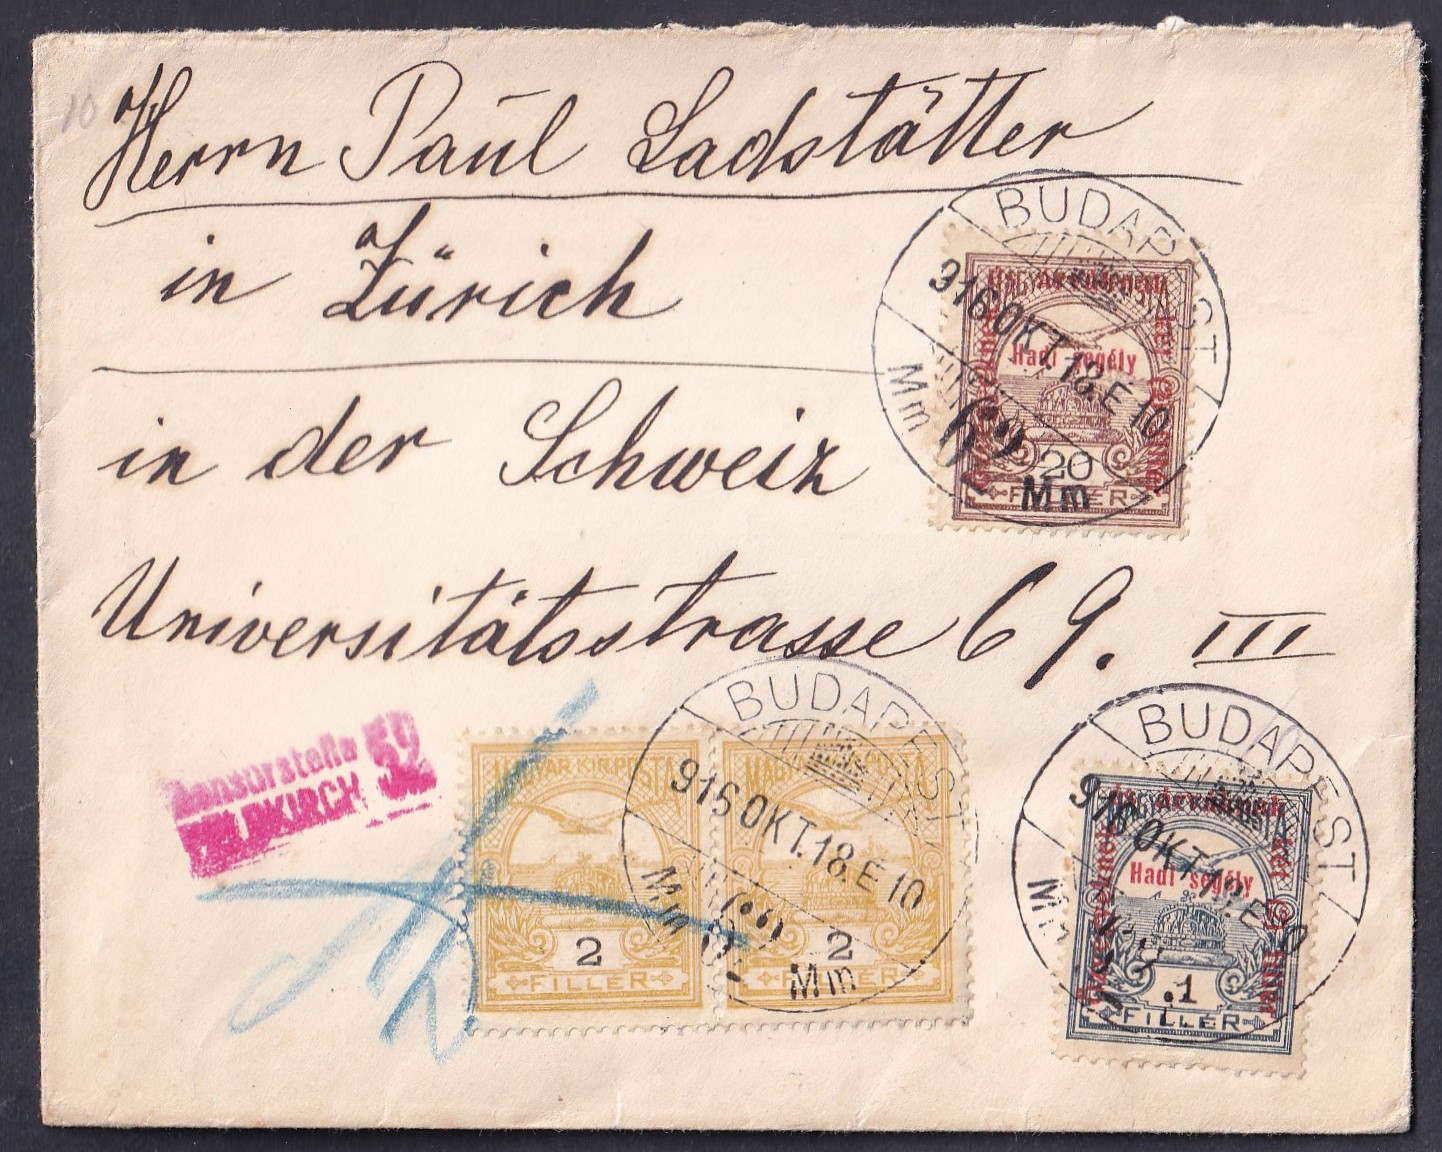 10
Herrn Paul Ladstätter
in Zürich
in der Schweiz
Universitätsstrasse 69. III
BUDAPEST
916 OKT. 18. E 10
Mm
Mm
Hadi segély
20
FILLER
Zensurstelle 52
FELDKIRCH
MAGYAR KIR. POSTA
2
FILLER
MAGYAR KIR. POSTA
2
FILLER
BUDAPEST
916 OKT. 18. E 10
Mm
Mm
BUDAPEST
916 OKT. 18. E 10
Hadi segély
1
FILLER